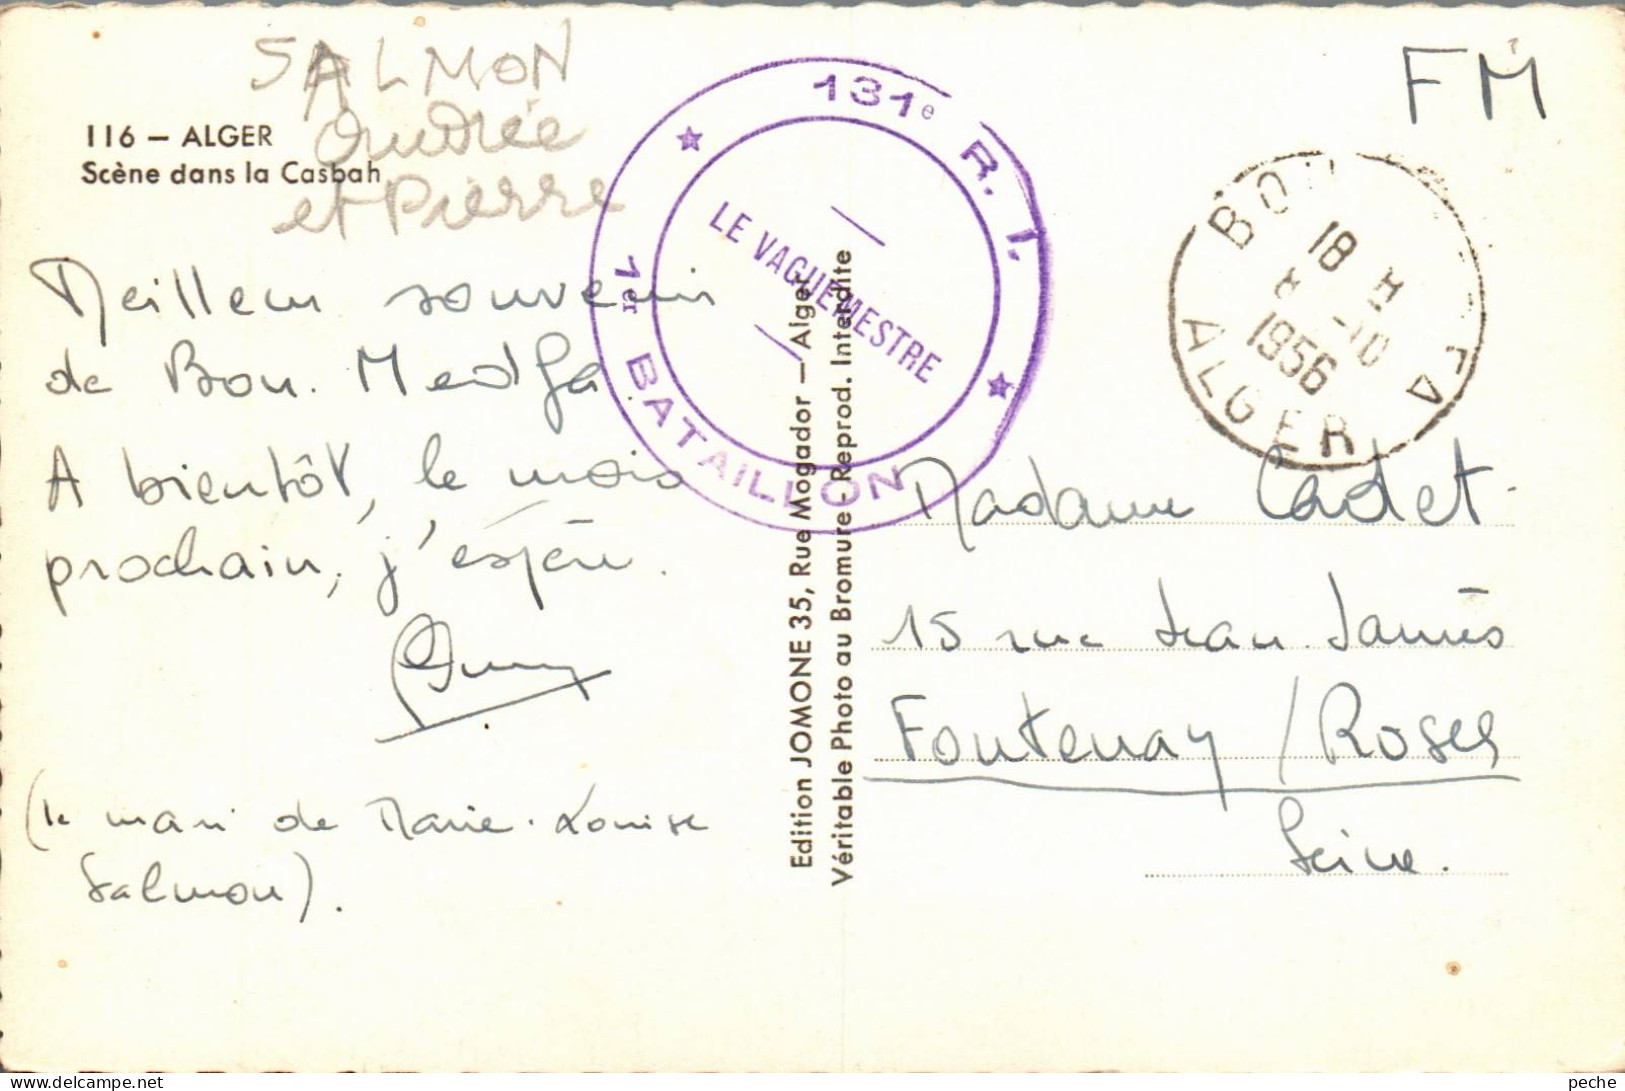 SALMON
Andrée
et Pierre
116 — ALGER
Scène dans la Casbah
Meilleur souvenir
de Bou. Medfa
A bientôt, le mois
prochain, j'espère.
(le mari de Marie-Louise
Salmon).
131e R. I.
1er BATAILLON
LE VAGUEMESTRE
Edition JOMONE 35, Rue Mogador — Alger
Véritable Photo au Bromure - Reprod. Interdite
FM
BOU FA
18 H
8 -10
1956
ALGER
Madame Cadet
15 rue Jean Jaurès
Fontenay / Roses
Seine.
peche